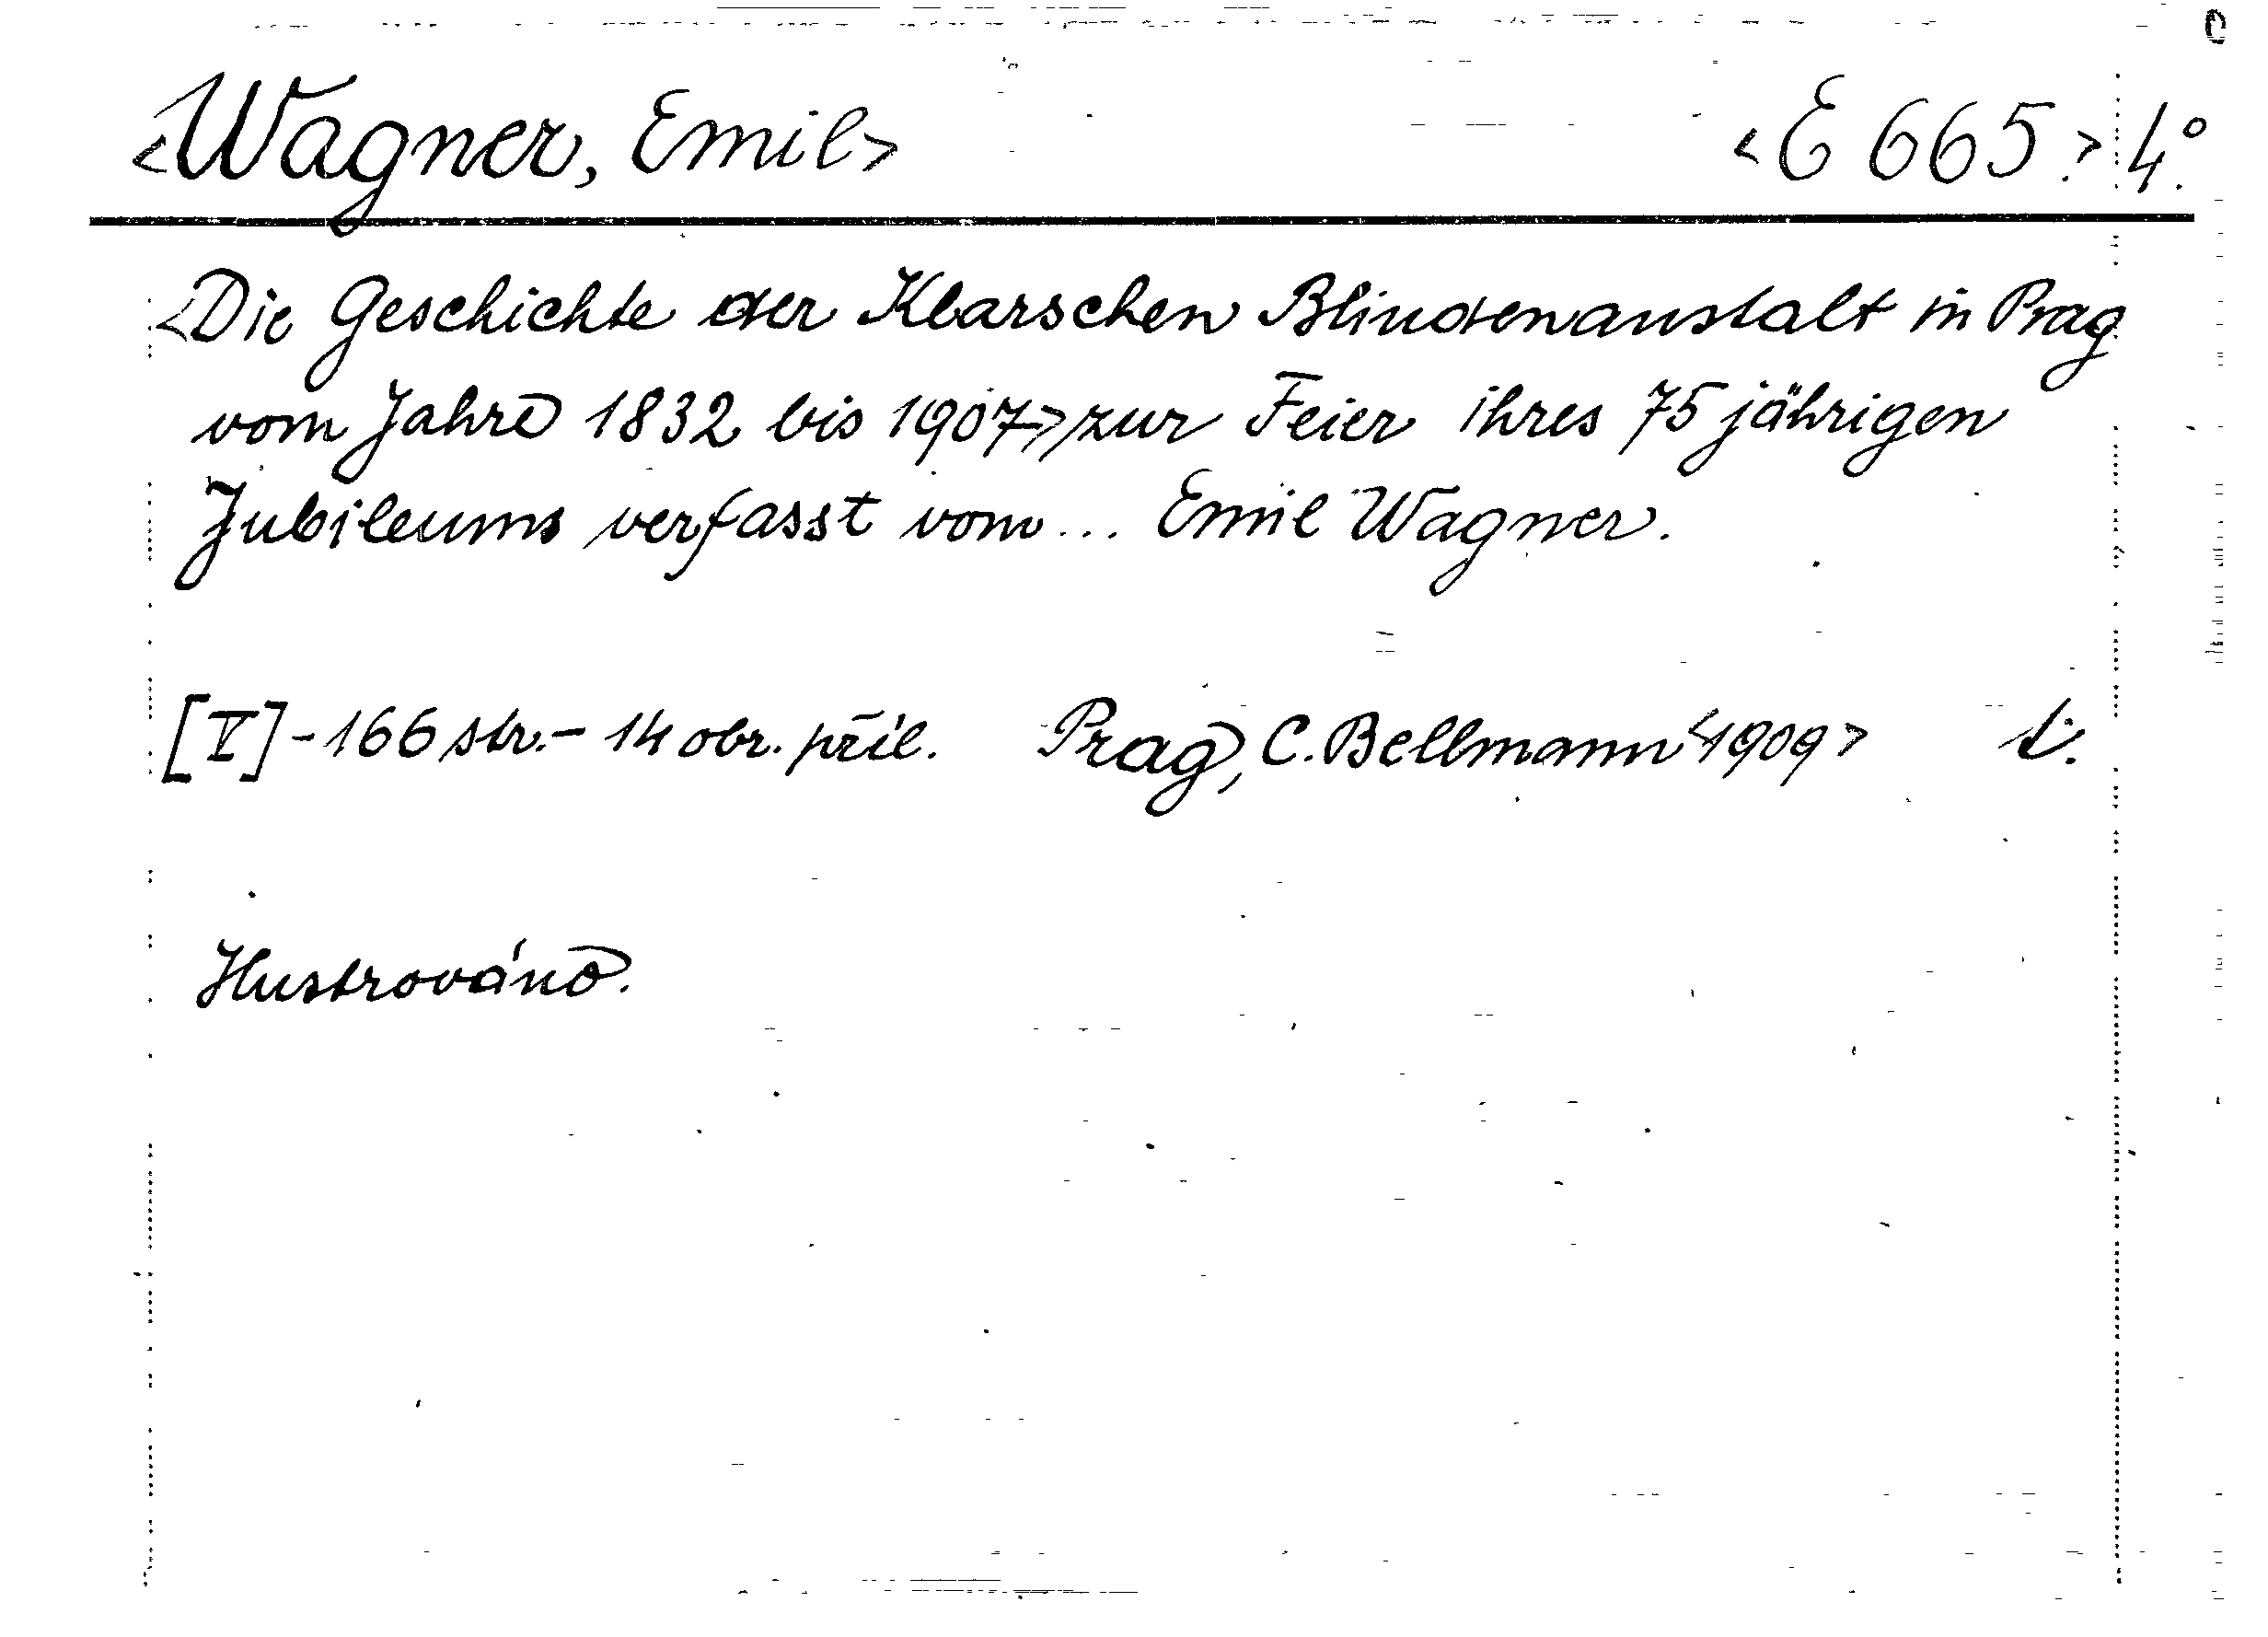 <Wagner, Emil> <E 665.> 4°.
<Die Geschichte der Klarschen Blindenanstalt in Prag
vom Jahre 1832 bis 1907> zur Feier ihres 75 jährigen
Jubileums verfasst vom ... Emil Wagner.
[V] - 166 str. - 14 obr. příl. Prag, C. Bellmann <1909>
Ilustrováno.